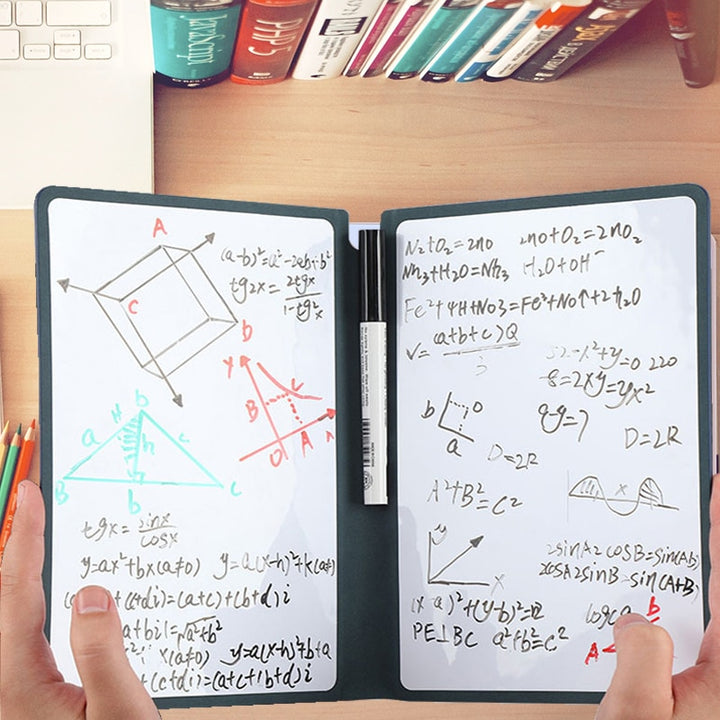 JavaScript
A
(a-b)²=a²-2ab+b²
tg2x=2tgx/1-tg²x
C
D
Y
B
C
O
A
b
H
a
h
c
B
b
C
tgx=sinx/cosx
y=ax²+bx(a≠0) y=a(x-h)²+k(a≠)
+(c+di)=(a+c)+(b+d)i
a+bi|=√a²+b²
x(a≠0) y=a(x-h)²+b+a
+(c+di)=(a+c+(b+d)i
N₂+O₂=2no 2no+O₂=2nO₂
Nh₃+H2O=Nh₃ H₂O+OH⁻
Fe²+4H+NO3=Fe³+No↑+2h₂O
V=(a+b+c)Q
-8=2xy=yx²
b
O
a
D=2R
D=2R
A²+B²=C²
x
y
x
2sinA2cosB=sin(AB)
2cosA2sinB=sin(A+B)
(x-a)²+(y-b)²=
PE⊥BC a²+b²=c²
b
A